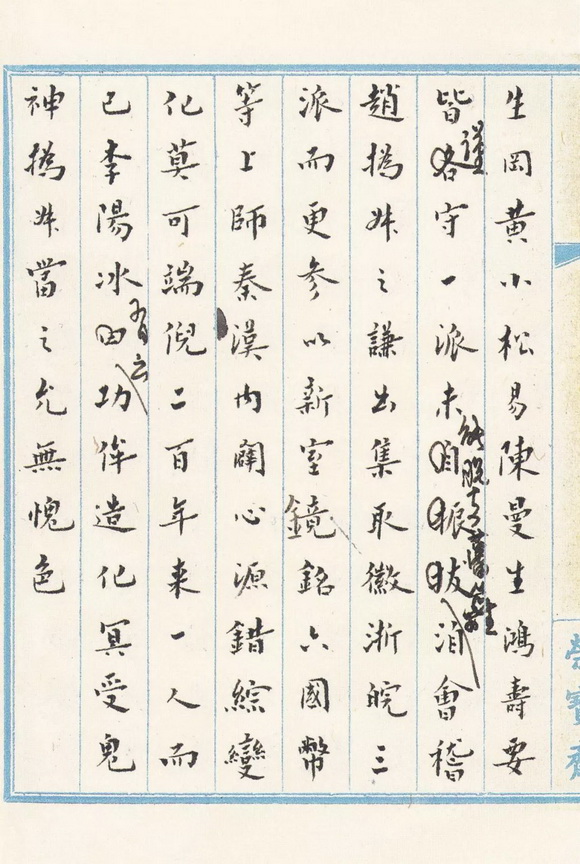 生岡黄小松易陳曼生鴻壽要
皆各守一派未自振拔洎會稽
謹
能脱
趙撝叔之謙出集取徽浙皖三
派而更參以新室鏡銘六國幣
等上師秦漢内闢心源錯綜變
化莫可端倪二百年来一人而
已李陽冰曰功侔造化冥受鬼
有云
神撝叔當之允無愧色
榮寶齋